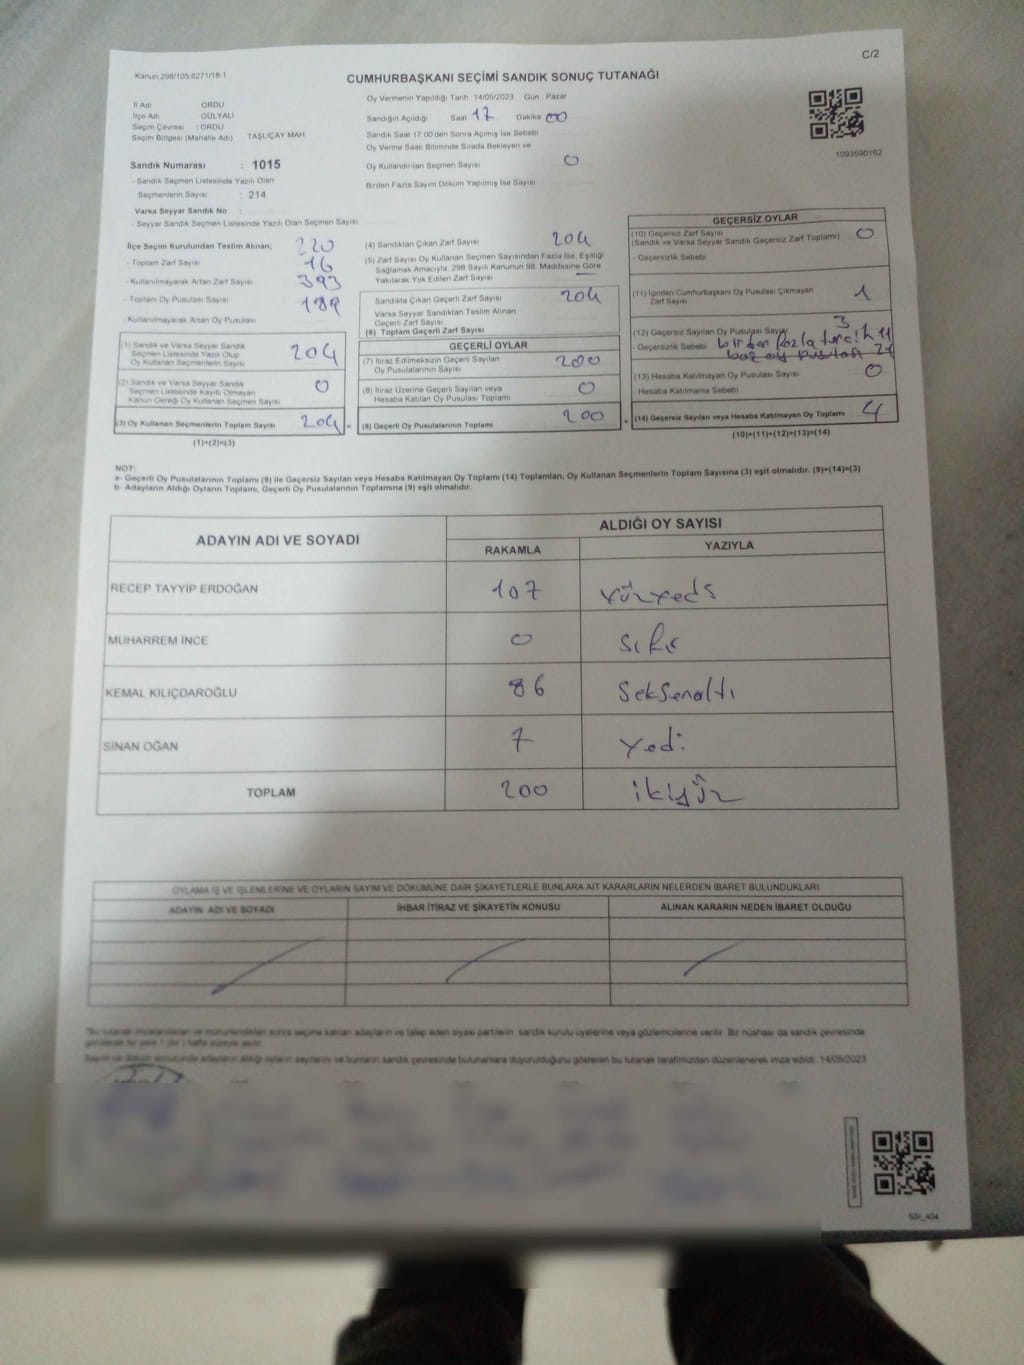 C/2
Kanun:298/105,6271/18-1
CUMHURBAŞKANI SEÇİMİ SANDIK SONUÇ TUTANAĞI
İl Adı ORDU
İlçe Adı GÜLYALI
Seçim Çevresi : ORDU
Seçim Bölgesi (Mahalle Adı) TAŞLIÇAY MAH
Sandık Numarası : 1015
- Sandık Seçmen Listesinde Yazılı Olan
Seçmenlerin Sayısı : 214
Varsa Seyyar Sandık No
- Seyyar Sandık Seçmen Listesinde Yazılı Olan Seçmen Sayısı
Oy Vermenin Yapıldığı Tarih 14/05/2023 Gün Pazar
Sandığın Açıldığı Saat 17 Dakika 00
Sandık Saat 17.00'den Sonra Açılmış İse Sebebi
Oy Verme Saati Bitiminde Sırada Bekleyen ve
Oy Kullandırılan Seçmen Sayısı 0
Birden Fazla Sayım Döküm Yapılmış İse Sayısı
1093590162
İlçe Seçim Kurulundan Teslim Alınan;
- Toplam Zarf Sayısı 220
- Kullanılmayarak Artan Zarf Sayısı 16
- Toplam Oy Pusulası Sayısı 393
- Kullanılmayarak Artan Oy Pusulası 189
(1) Sandık ve Varsa Seyyar Sandık
Seçmen Listesinde Yazılı Olup
Oy Kullanan Seçmenlerin Sayısı 204
(2) Sandık ve Varsa Seyyar Sandık
Seçmen Listesinde Kayıtlı Olmayan
Kanun Gereği Oy Kullanan Seçmen Sayısı 0
(3) Oy Kullanan Seçmenlerin Toplam Sayısı 204
(1)+(2)=(3)
(4) Sandıktan Çıkan Zarf Sayısı 204
(5) Zarf Sayısı Oy Kullanan Seçmen Sayısından Fazla İse, Eşitliği
Sağlamak Amacıyla, 298 Sayılı Kanunun 98. Maddesine Göre
Yakılarak Yok Edilen Zarf Sayısı
Sandıkta Çıkan Geçerli Zarf Sayısı 204
Varsa Seyyar Sandıktan Teslim Alınan
Geçerli Zarf Sayısı
(6) Toplam Geçerli Zarf Sayısı
GEÇERLİ OYLAR
(7) İtiraz Edilmeksizin Geçerli Sayılan
Oy Pusulalarının Sayısı 200
(8) İtiraz Üzerine Geçerli Sayılan veya
Hesaba Katılan Oy Pusulası Toplamı 0
(9) Geçerli Oy Pusulalarının Toplamı 200
GEÇERSİZ OYLAR
(10) Geçersiz Zarf Sayısı
(Sandık ve Varsa Seyyar Sandık Geçersiz Zarf Toplamı) 0
- Geçersizlik Sebebi
(11) İçinden Cumhurbaşkanı Oy Pusulası Çıkmayan
Zarf Sayısı 1
(12) Geçersiz Sayılan Oy Pusulası Sayısı 3
- Geçersizlik Sebebi birden fazla tercih 1
boş oy pusulası 2
(13) Hesaba Katılmayan Oy Pusulası Sayısı 0
- Hesaba Katılmama Sebebi
(14) Geçersiz Sayılan veya Hesaba Katılmayan Oy Toplamı 4
(10)+(11)+(12)+(13)=(14)
NOT:
a- Geçerli Oy Pusulalarının Toplamı (9) ile Geçersiz Sayılan veya Hesaba Katılmayan Oy Toplamı (14) Toplamları, Oy Kullanan Seçmenlerin Toplam Sayısına (3) eşit olmalıdır. (9)+(14)=(3)
b- Adayların Aldığı Oyların Toplamı, Geçerli Oy Pusulalarının Toplamına (9) eşit olmalıdır.
ADAYIN ADI VE SOYADI ALDIĞI OY SAYISI
RAKAMLA YAZIYLA
RECEP TAYYİP ERDOĞAN 107 Yüzyedi
MUHARREM İNCE 0 Sıfır
KEMAL KILIÇDAROĞLU 86 Seksenaltı
SİNAN OĞAN 7 Yedi
TOPLAM 200 ikiyüz
OYLAMA İŞ VE İŞLEMLERİNE VE OYLARIN SAYIM VE DÖKÜMÜNE DAİR ŞİKAYETLERLE BUNLARA AİT KARARLARIN NELERDEN İBARET BULUNDUKLARI
ADAYIN ADI VE SOYADI İHBAR İTİRAZ VE ŞİKAYETİN KONUSU ALINAN KARARIN NEDEN İBARET OLDUĞU
sonra seçime katılan adayların ve talep eden siyasi partilerin sandık kurulu üyelerine veya gözlemcilerine verilir. Bir nüshası da sandık çevresinde
Sayım ve döküm sonucunda adayların aldığı oyların sayılarını ve bunların sandık çevresinde bulunanlara duyurulduğunu gösteren bu tutanak tarafımızdan düzenlenerek imza edildi. 14/05/2023
SSI_404